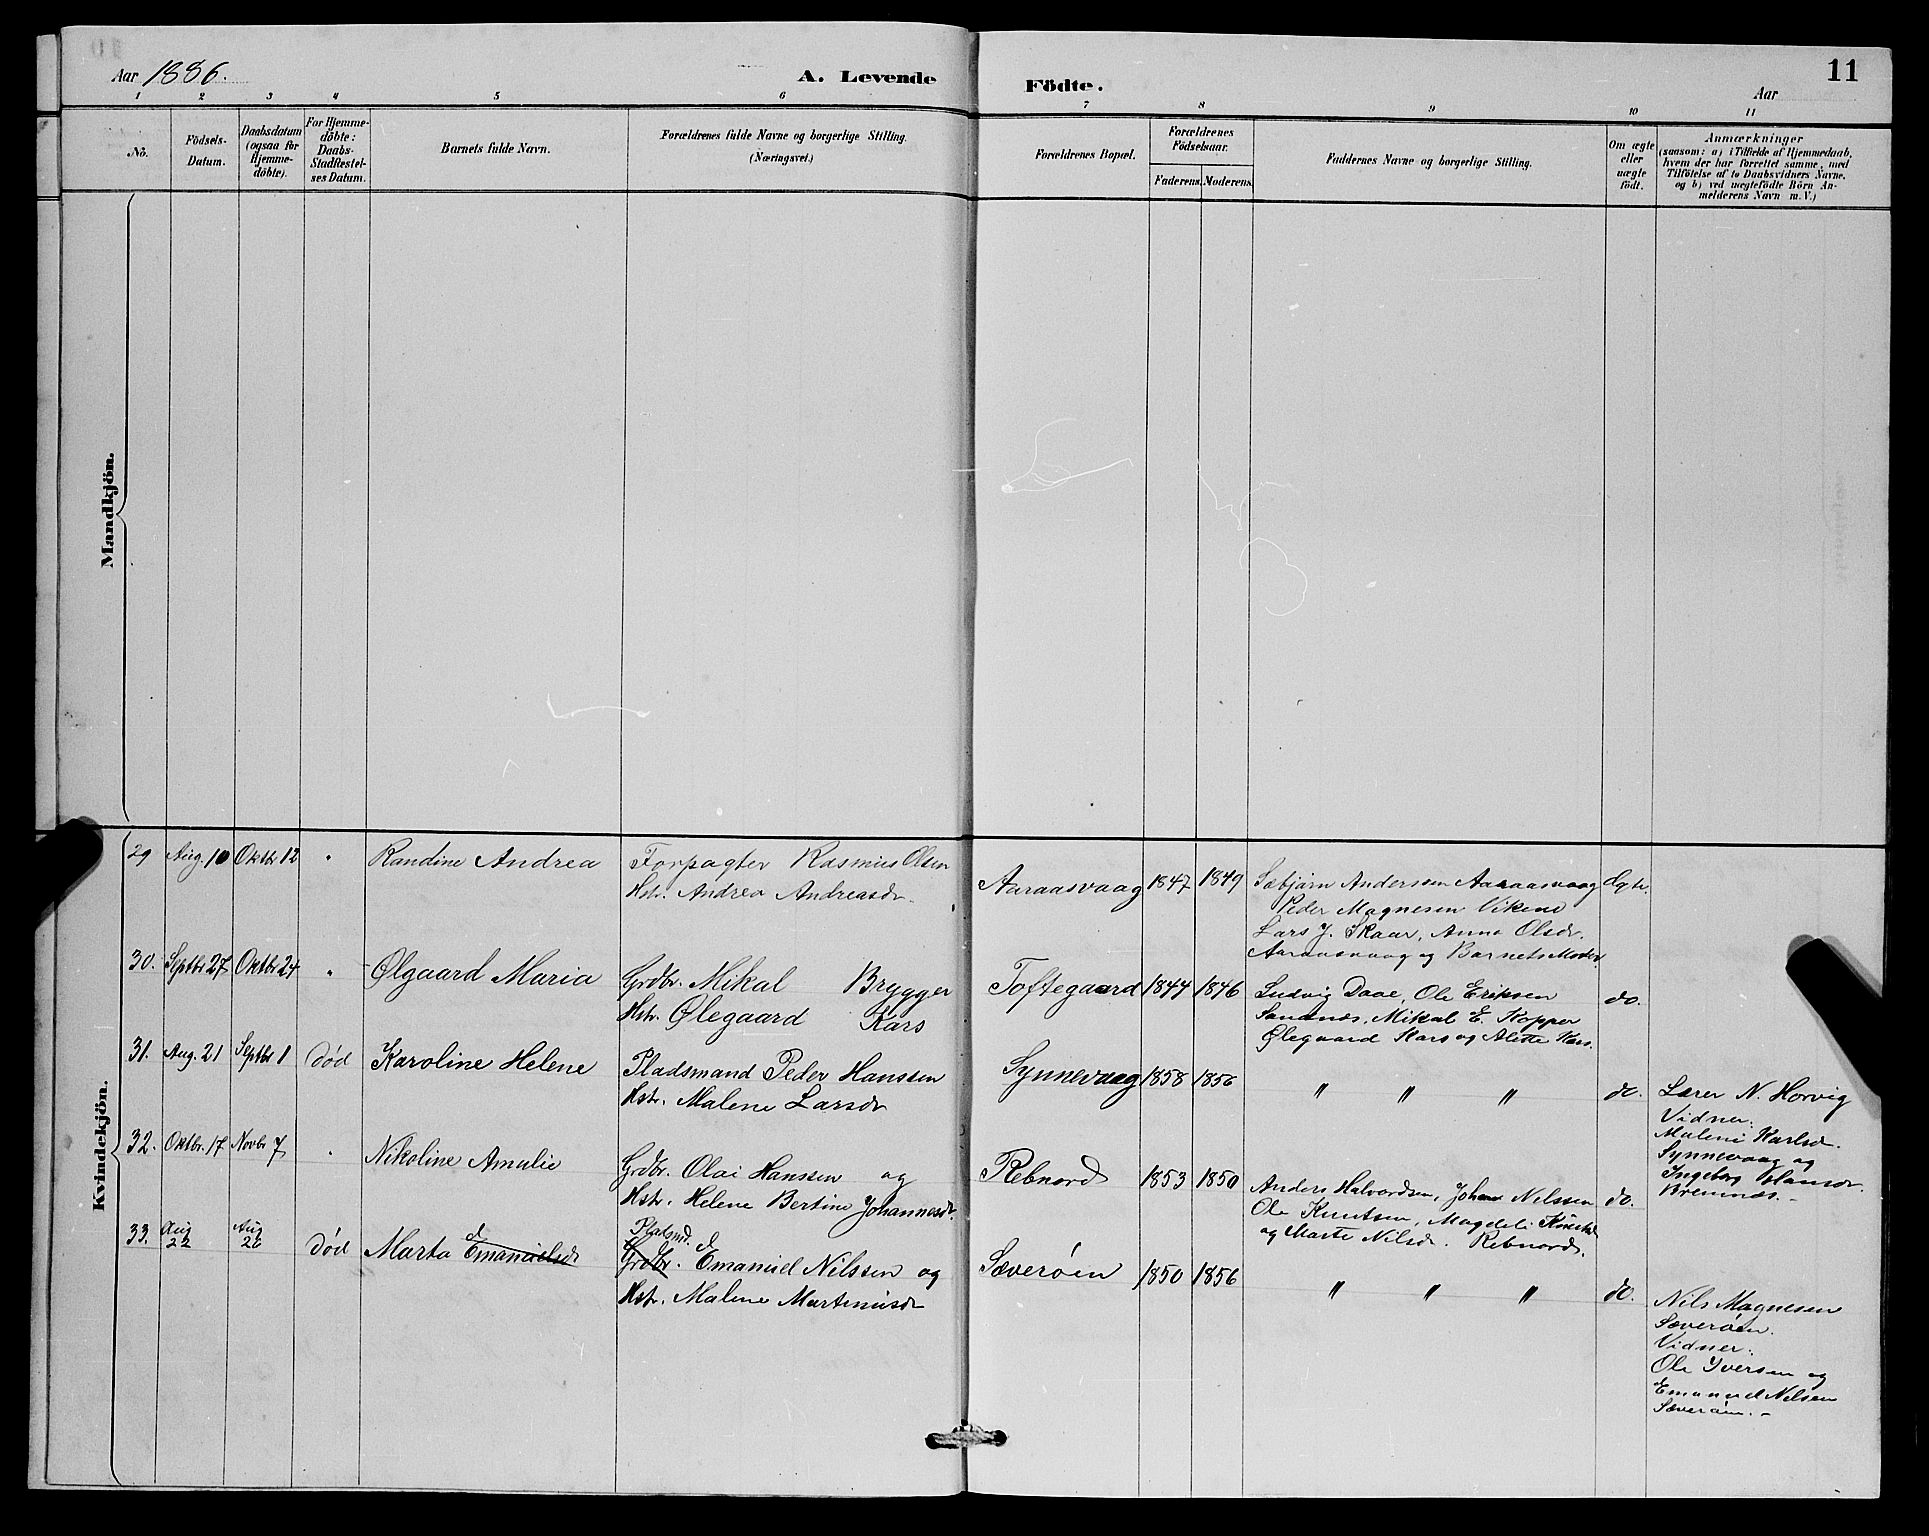 Aar 1886.
A. Levende
Födte.
11
Aar
1 2 3 4 5 6 7 8 9 10 11
No.
Födsels-
Datum.
Daabsdatum
(ogsaa for
Hjemme-
döbte).
For Hjemme-
döbte:
Daabs-
Stadfæstel-
ses Datum.
Barnets fulde Navn.
Forældrenes fulde Navne og borgerlige Stilling.
(Næringsvei.)
Forældrenes Bopæl.
Forældrenes
Födselsaar.
Faderens. Moderens.
Faddernes Navne og borgerlige Stilling.
Om ægte
eller
uægte
födt.
Anmærkninger
(saasom: a) i Tilfælde af Hjemmedaab,
hvem der har forrettet samme, med
Tilföielse af to Daabsvidners Navne,
og b) ved uægtefödte Börn An-
melderens Navn m. V.)
Mandkjön.
Kvindekjön.
29 Aug. 10 Oktb 12 " Randine Andrea
Forpagter Rasmus Olsen
Hstr. Andrea Andreasdr.
Aaraasvaag 1847 1849
Sæbjörn Andersen Aaraasvaag
Peder Magnesen Vikene
Lars J. Skaar, Anna Olsdr.
Aaraasvaag og Barnets Moder.
Ægte.
30. Septbr 27 Oktbr 24 " Ølgaard Maria
Grdbr. Mikal Brygger
Hstr. Ølegaard Kars
Toftegaard 1844 1846
Ludvig Daae, Ole Eriksen
Sandnæs, Mikal E. Kopper
Ølegaard Kars og Alette Kars.
do.
31. Aug. 21 Septbr 1 död Karoline Helene
Pladsmand Peder Hanssen
Hstr. Malene Larsdr
Synnevaag 1858 1856
" " "
do.
Lærer N. Horvig
Vidner:
Malene Karlsdr.
Synnevaag og
Ingeborg
Bremnæs.-
32. Oktbr. 17 Novbr 7 " Nikoline Amalie
Grdbr. Olai Hanssen og
Hstr. Helene Bertine Johannesdr.
Rebnord 1853 1850
Anders Halvordsen, Johan Nilssen
Ole Knutsen, Magdeli Knutsd
og Marte Nilsdr. Rebnord.
do.
33. Aug 22 Aug 26 död Marta Emanuelsdr
Pladsmd.
Grdbr. Emanuel Nilssen og
Hstr. Malene Martinusdr
Sæveröen 1850 1856
" " "
do.
Nils Magnesen
Sæveröen.
Vidner:
Ole Iversen og
Emanuel Nilsen
Sæveröen.-